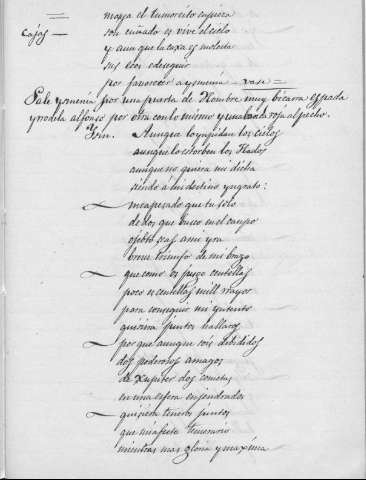 mozza el tumorcito empieza
Cajas — son cuñado es vive el cielo
y aunque la caxa es molesta
sus ecos e de seguir
por favorecer a ysmenia vase =
Sale ysmenia por una puerta de Hombre muy bizarra espada
y rodela alfonso por otra con lo mismo y una banda roja al pecho.
Ysm. Aunque lo ympidan los cielos
aunque lo estorben los Hados
aunque no quiera mi dicha
siendo a mi destino yngrato:
me a pesado que tu solo
de dos que busco en el campo
objeto seas a mi yra
breve triunfo de mi brazo
que como os juzgo centellas
poco o centellas mill rayos
para conseguir mi yntento
quisiera juntos hallaros
por que aunque sois debididos
dos poderosos amagos
de Jupiter dos cometas
en una esfera enjendrados
quisiera teneros juntos
que mi afecto temerario
mientras mas gloria y maxima